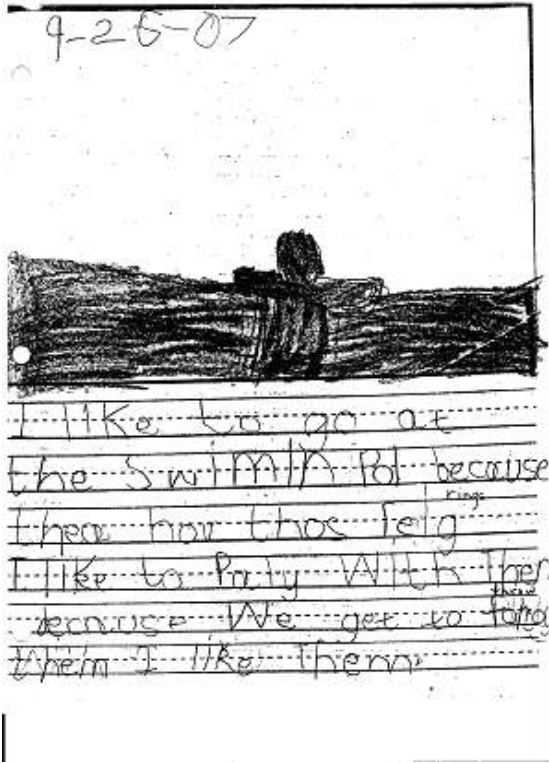 9-26-07
I like to go at
the SwIMIN Pol because
thea hav thos felg
rings
I like to Paly With Them
because We get to
throw
them I like Them